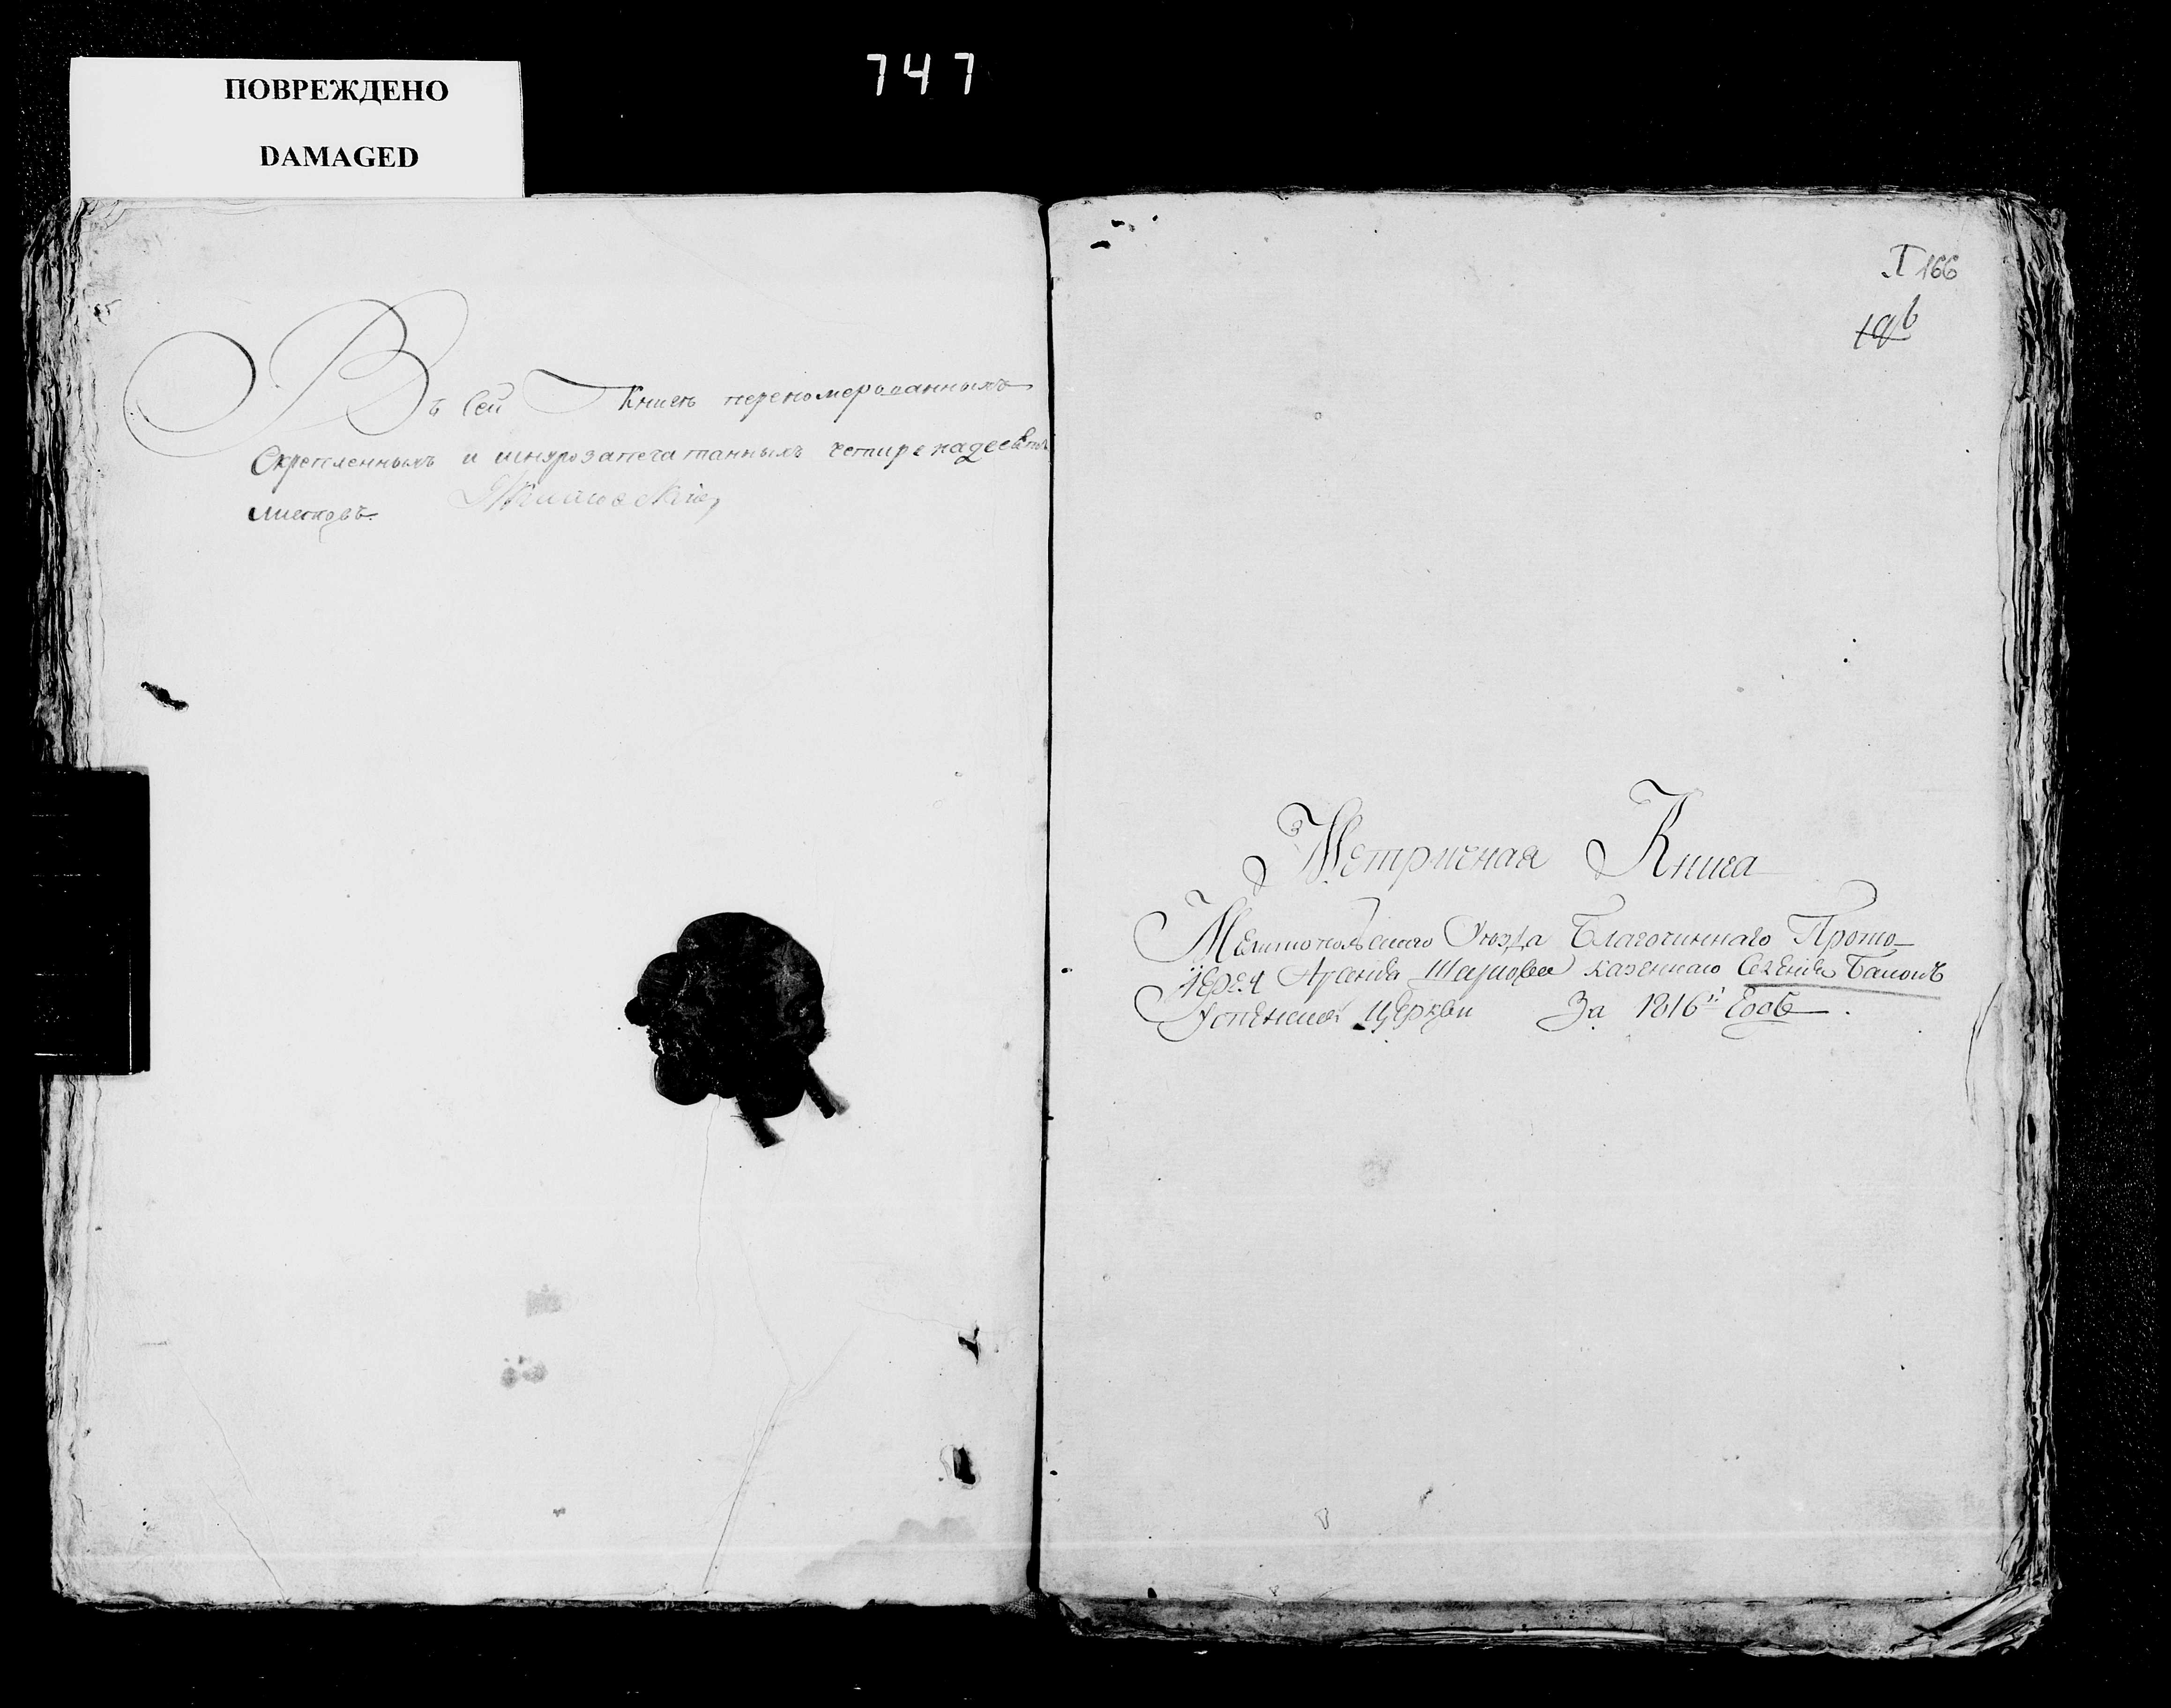 747
ПОВРЕЖДЕНО
DAMAGED
Въ сей Книгѣ переномерованныхъ
Скрепленныхъ и шнурозапечатанныхъ четиренадесять
листовъ.
I 166
Метричная Книга
Мелитопольскаго Уѣзда Благочиннаго Прото-
іерея казеннаго Селенія
Успенской Церкви За 1816й Годъ.